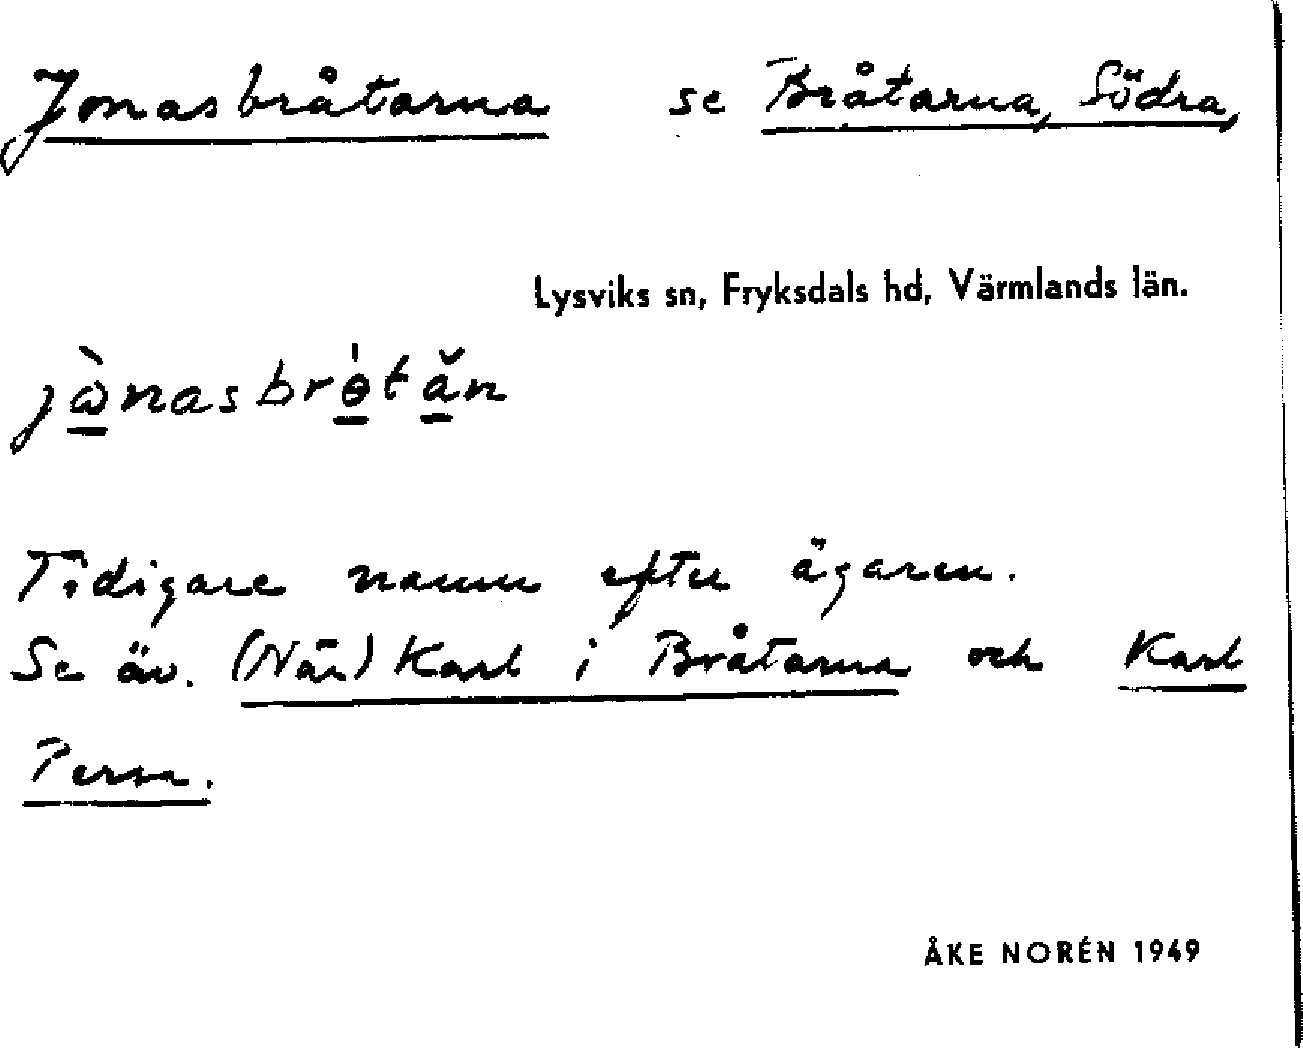 Jonasbråtarna se Bråtarna, Södra,
Lysviks sn, Fryksdals hd, Värmlands län.
jὼnasbrɵ́tăn
Tidigare namn efter ägaren.
Se äv. (När) Karl i Bråtarna och Karl
Persa.
ÅKE NORÉN 1949